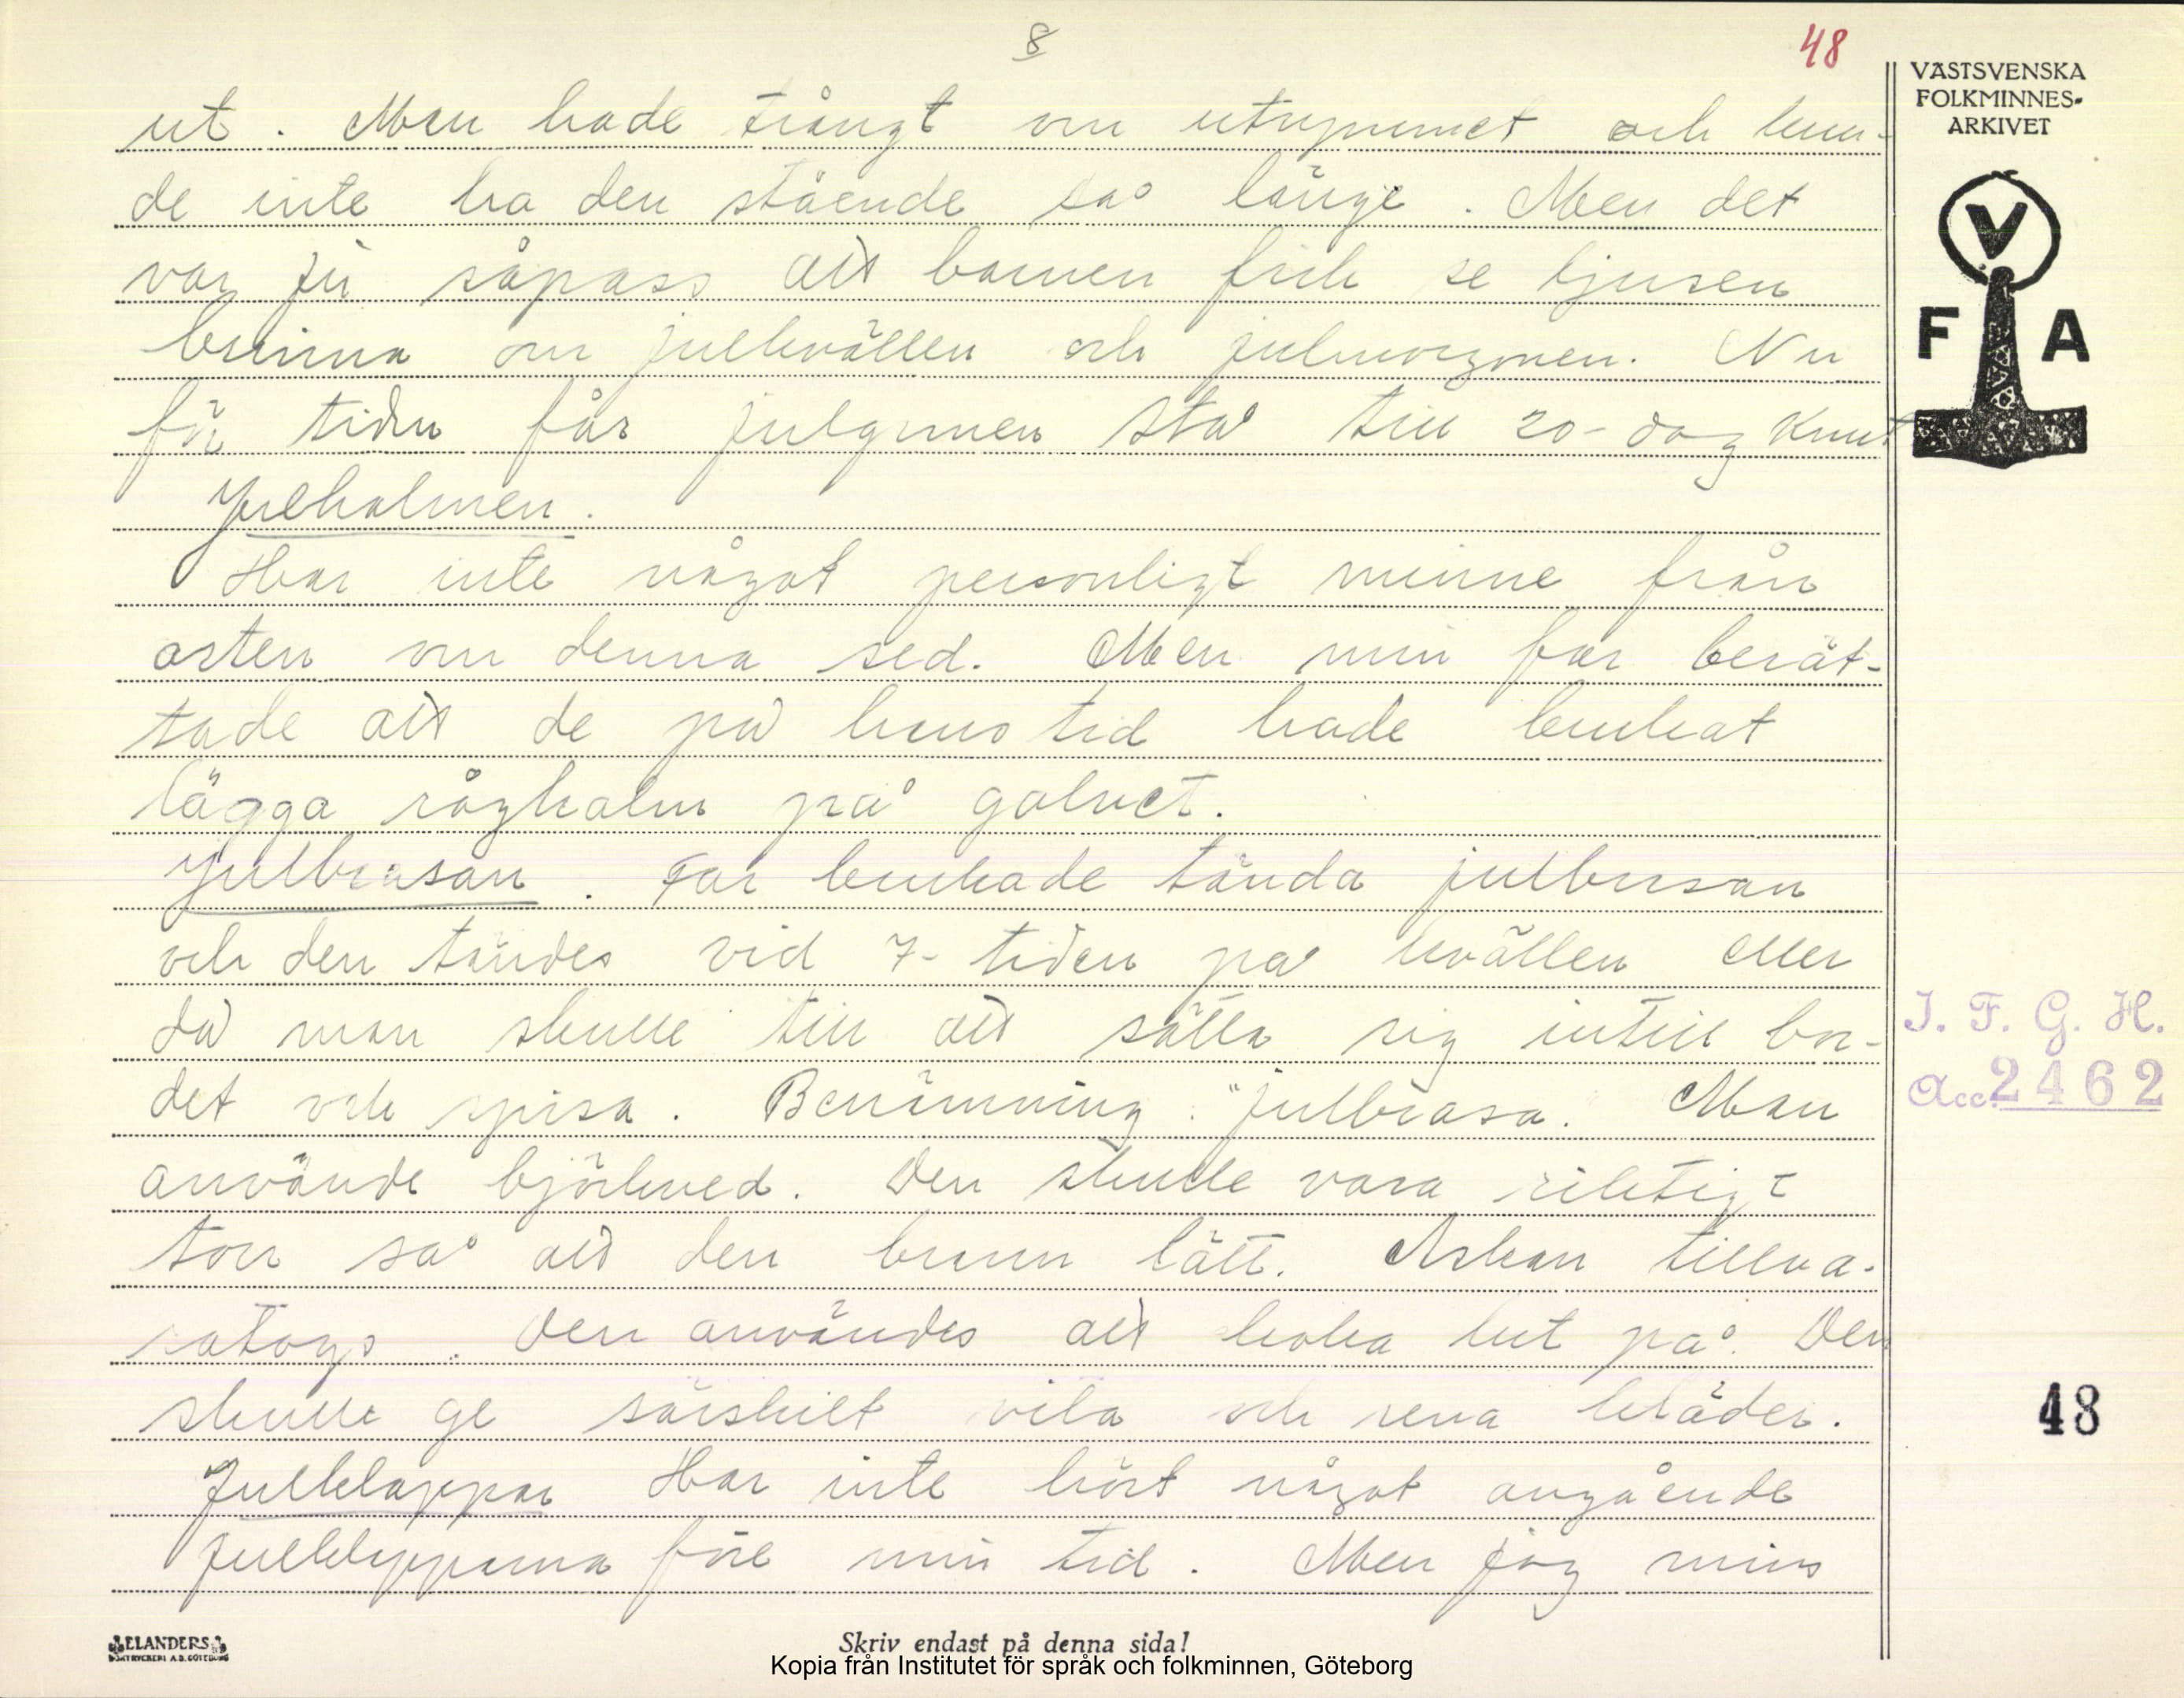 8
48
ut. Man hade trångt om utrymmet och kun-
de inte ha den stående så länge. Men det
var ju såpass att barnen fick se ljusen
brinna om julkvällen och julmorgonen. Nu
för tiden får julgranen stå till 20-dag Knut
Julhalmen.
Har inte något personligt minne från
orten om denna sed. Men min far berät-
tade att de på hans tid hade brukat
lägga råghalm på golvet.
Julbrasan. Far brukade tända julbrasan
och den tändes vid 7-tiden på kvällen eller
då man skulle till att sätta sig intill bor-
det och spisa. Benämning: "julbrasa. Man
använde björkved. Den skulle vara riktigt
torr så att den brann lätt. Askan tillva-
ratogs. Den användes att koka lut på. Den
skulle ge särskilt vita och rena kläder.
Julklappar Har inte hört något angående
julklapparna före min tid. Men jag mins
VÄSTSVENSKA
FOLKMINNES-
ARKIVET
V
F A
I. F. G. H.
Acc. 2462
48
ELANDERS
BOKTRYCKERI A.B. GÖTEBORG
Skriv endast på denna sida!
Kopia från Institutet för språk och folkminnen, Göteborg